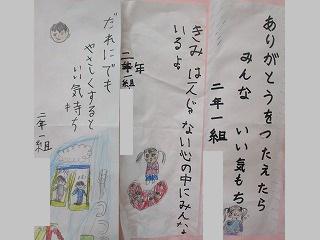 ありがとうをつたえたら
みんな いい気もち
二年一組
きみは一人じゃない心の中にみんな
いるよ
二年一組
だれにでも
やさしくすると
いい気持ち
二年一組